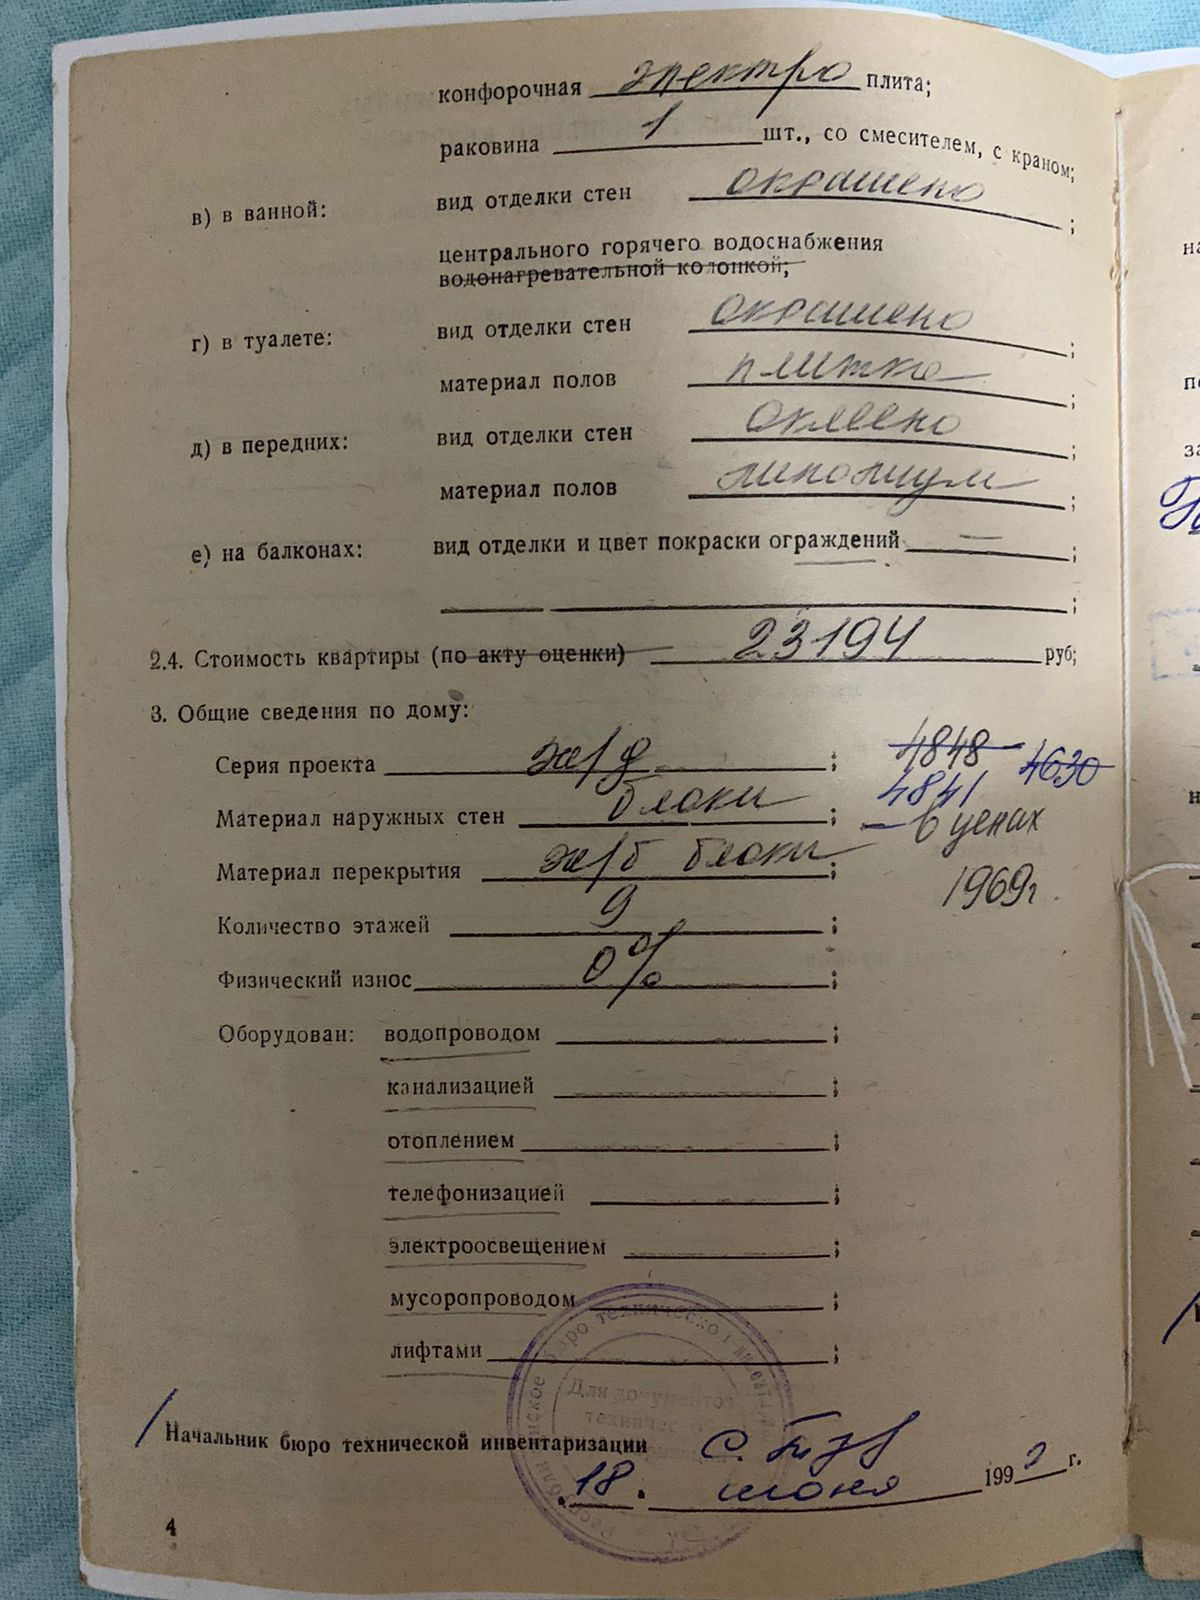 конфорочная электро плита;
раковина 1 шт., со смесителем, с краном;
в) в ванной: вид отделки стен окрашено ;
центрального горячего водоснабжения
водонагревательной колонкой;
г) в туалете: вид отделки стен окрашено ;
материал полов плитка ;
д) в передних: вид отделки стен оклеено ;
материал полов линолиум ;
е) на балконах: вид отделки и цвет покраски ограждений — ;
;
2.4. Стоимость квартиры (по акту оценки) 23194 руб;
3. Общие сведения по дому:
Серия проекта ж/д ; 4848 4630
4841
Материал наружных стен блоки ; — в ценах
Материал перекрытия ж/б блоки ; 1969г.
Количество этажей 9 ;
Физический износ 0% ;
Оборудован: водопроводом ;
канализацией ;
отоплением ;
телефонизацией ;
электроосвещением ;
мусоропроводом ;
лифтами ;
бюро техническо
Для документов
Начальник бюро технической инвентаризации
18 июня 1992 г.
4
на
за